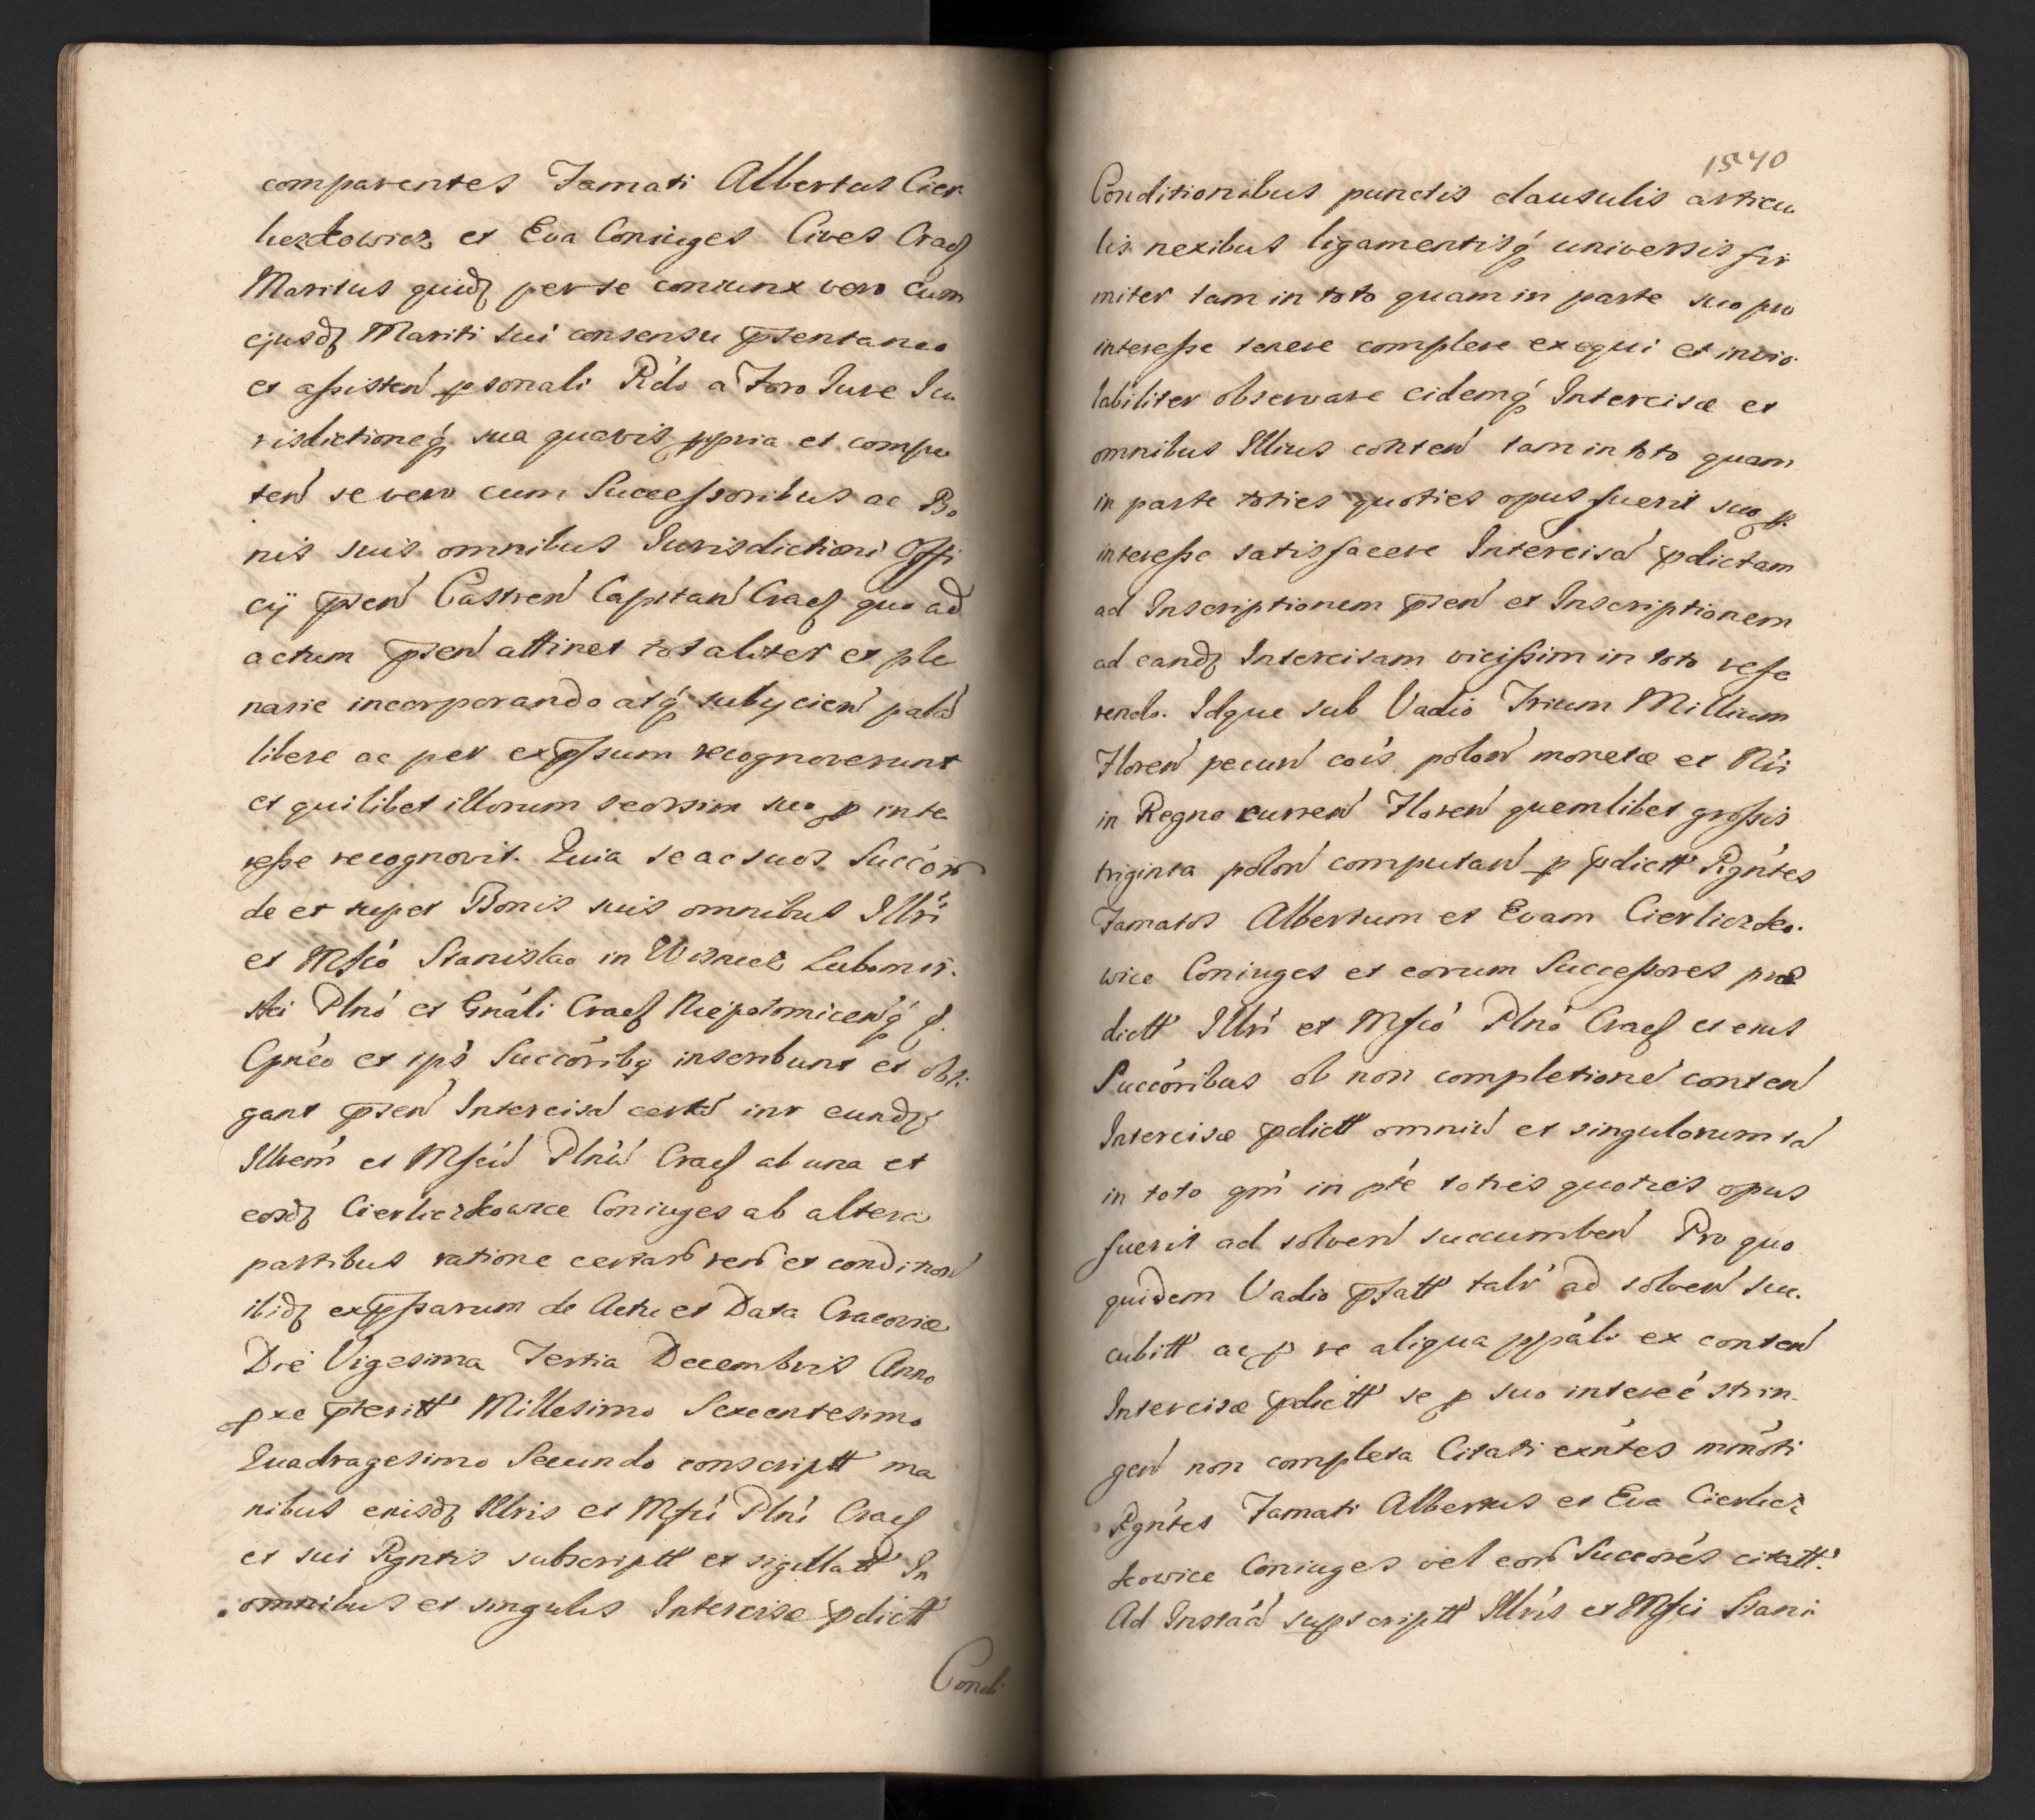 comparentes Famati Albertus Cier
liczkowicz et Eva Coniuges Cives Crac
Maritus quidꝫ per se coniunx vero cum
ejusdꝫ Mariti sui consensu p̄sentaneo
et assisten̄ p̱sonali Rc̄do a Foro Jure Ju
risdictioneq́ sua quavis p̱pria et compe
ten̄ se vero cum Successoribus ac Bo
nis suis omnibus Jurisdictioni Offi
cÿ p̄sen̄ Castren̄ Capitan̄ Crac quo ad
actum p̄sen̄ attinet totaliter et ple
narie incorporando atq́ subÿcien̄ palā
libere ac per exp̄ssum recognoverunt
et quilibet illorum seorsim suo p̱ inte
resse recognovit. Quia se ac suos Succōr
de et super Bonis suis omnibus Illri
et Mfco Stanislao in Wisnicz Lubomir.
ski Plno et Gnali Crac Niepolomicen̄q́ p.
Cpneo et ips Succoribꝫ inscribunt et obli
gant p̄sen̄ Intercisā certā intr eundꝫ
Illrem et Mfcū Plnū Crac ab una et
eosdꝫ Cierliczkowice Coniuges ab altera
partibus ratione certarū rerū et condition̄
ibidꝫ exp̄ssarum de Actu et Data Cracoviæ
Die Vigesima Tertia Decembris Anno
p̱xe p̄teritt Millesimo Sexcentesimo
Quadragesimo Secundo conscriptt ma
nibus eiusdꝫ Illris et Mfci Plni Crac
et sui Rgntis subscriptt et sigillatt In
omnibus et singulis Intercisæ p̄dictt
Condi
1540
Conditionibus punctis clausulis articu
lis nexibus ligamentisq́ universis fir
miter tam in toto quam in parte suo pro
interesse tenere complere exequi et invio
labiliter observare eidemq́ Intercisæ et
omnibus Illius conten̄ tam in toto quam
in parte toties quoties opus fuerit suo p̱.
interesse satisfacere Intercisā p̄dictam
ad Inscriptionem p̄sen̄ et Inscriptionem
ad eandꝫ Intercisam vicissim in toto refe
rendo. Idque sub Vadio Trium Millium
Floren̄ pecun̄ cōis polon̄ monetæ et Nri
in Regno curren̄ Floren̄ quemlibet grossis
triginta polon̄ computan̄ p̱ p̄dictt Rgntes
Famatos Albertum et Evam Cierliczko.
wice Coniuges et eorum Successores præ
dictt Illri et Mfco Plno Crac et eius
Succoribus ob non completionē conten̄
Intercisæ p̄dictt omniū et singulorum tā
in toto qm̄ in pte toties quoties opus
fuerit ad solven̄ succumben̄ Pro quo
quidem Vadio p̄fatt talr ad solven̄ suc.
cubitt ac p̱ re aliqua p̱pali ex conten̄
Intercisæ p̄dictt se p̱ suo interee strin.
gen̄ non completa Citati exntes mmoti
Rgntes Famati Albertus et Eva Cierlicz
kowice Coniuges vel eorū Succores citatt.
Ad Instaā supscriptt Illris et Mfci Stani